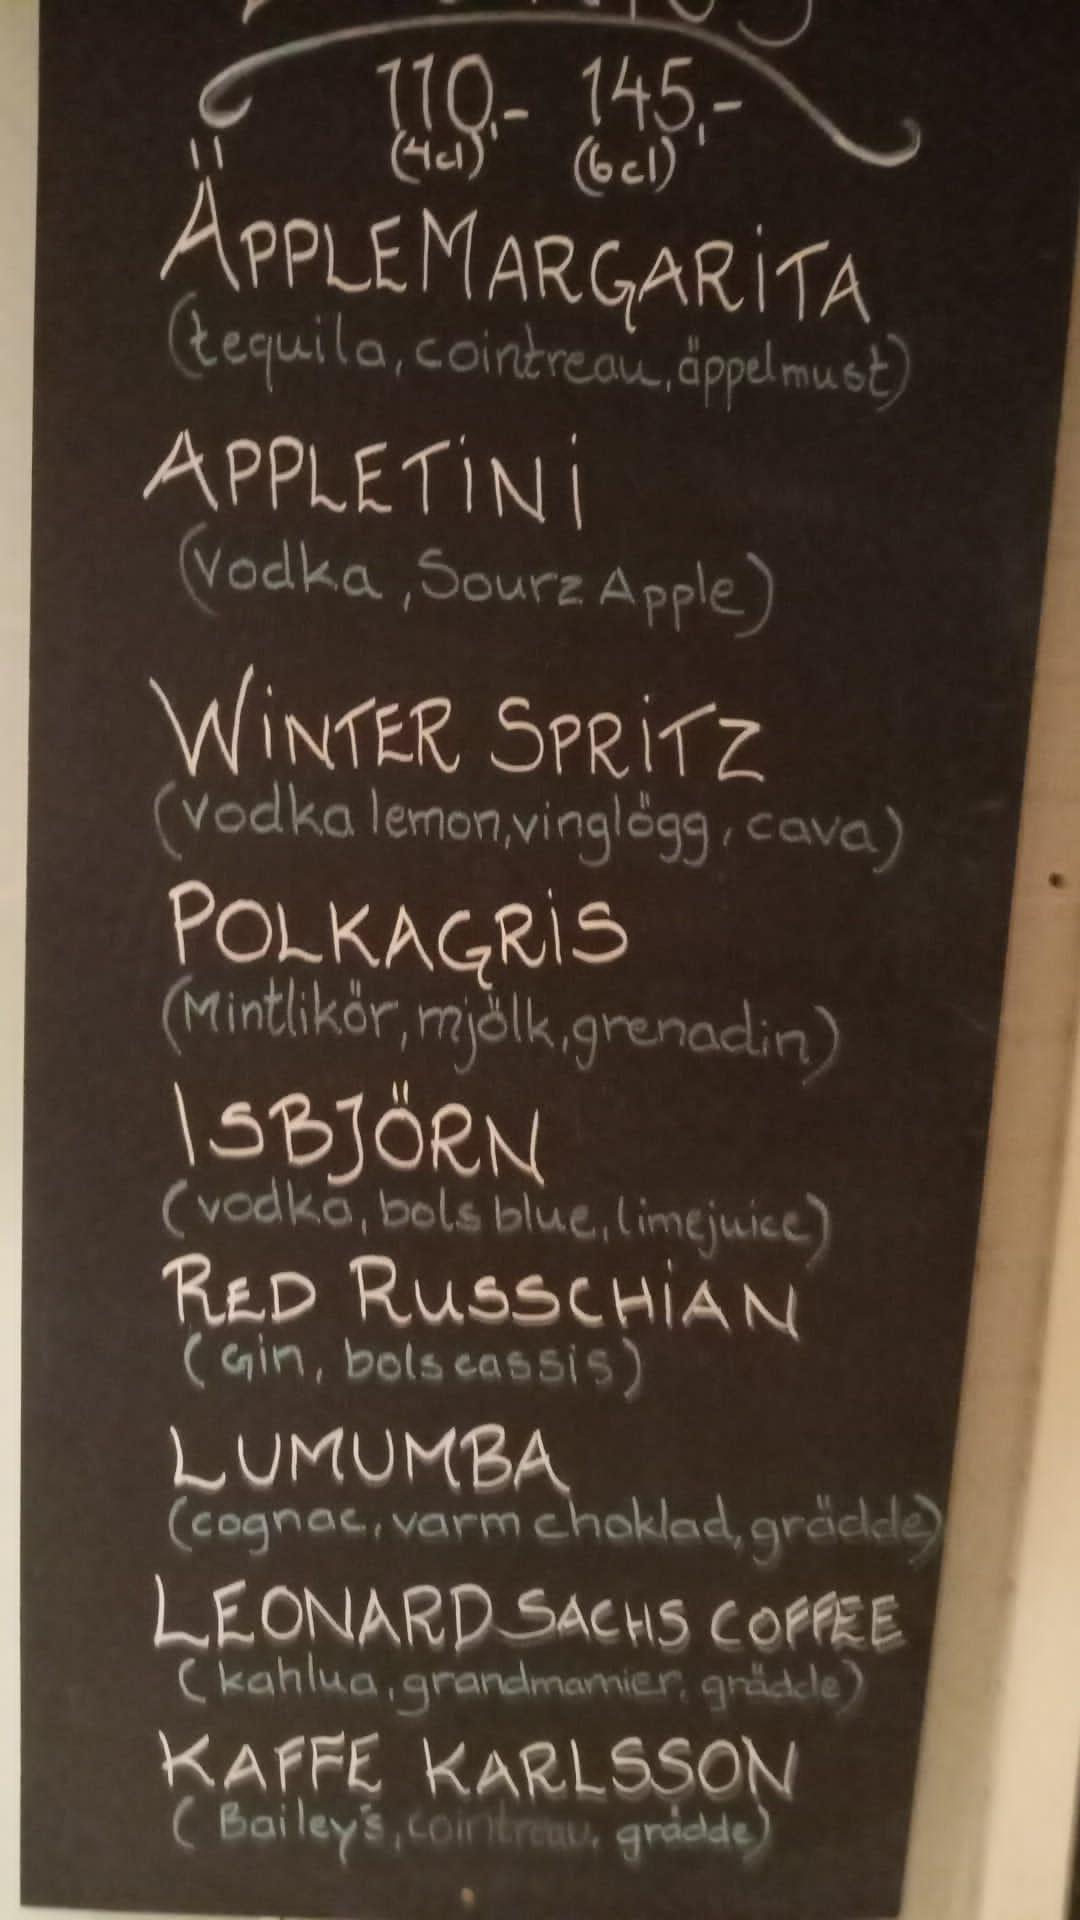 110,- 145,-
(4cl) (6cl)
ÄPPLEMARGARITA
(tequila, cointreau, äppelmust)
APPLETINI
(Vodka, Sourz Apple)
WINTER SPRITZ
(Vodka lemon, vinglögg, cava)
POLKAGRIS
(Mintlikör, mjölk, grenadin)
ISBJÖRN
(vodka, bols blue, limejuice)
RED RUSSCHIAN
(Gin, bols cassis)
LUMUMBA
(cognac, varm choklad, grädde)
LEONARD SACHS COFFEE
(kahlua, grandmarnier, grädde)
KAFFE KARLSSON
(Bailey's, cointreau, grädde)